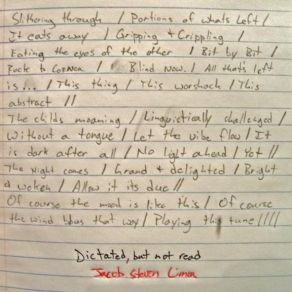 Slithering through / Portions of whats left /
It eats away / Gripping & Crippling /
Eating the eyes of the other / Bit by Bit /
Back to / Blind Now. / All that's left
is... / This thing / This / This
abstract //
The childs moaning / Linguistically challenged /
Without a tongue / Let the vibe flow / It
is dark after all / No light ahead / Yet //
The night comes / Grand & delighted / Bright
& woken / Allow it its due //
Of course the mood is like this / Of course
the wind blows that way / Playing this tune ////
Dictated, but not read
Jacob Steven Limon